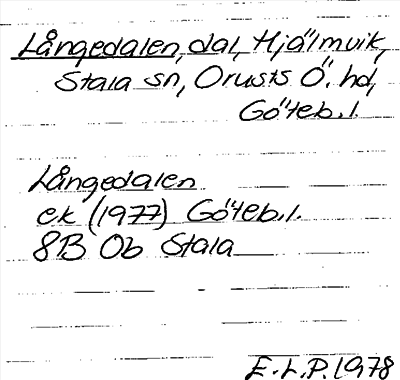 Långedalen, dal, Hjälmvik,
Stala sn, Orusts Ö. hd,
Göteb. l.
Långedalen
ek (1977) Göteb. l.
8B Ob Stala
E. L. P. 1978